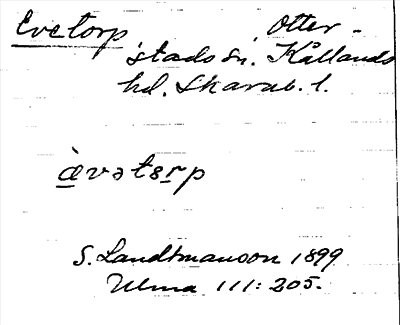 Evetorp Otter-
stads sn. Kållands
hd. Skarab. l.
ævətɛrp
S. Landtmanson 1899
Ulma 111:205.